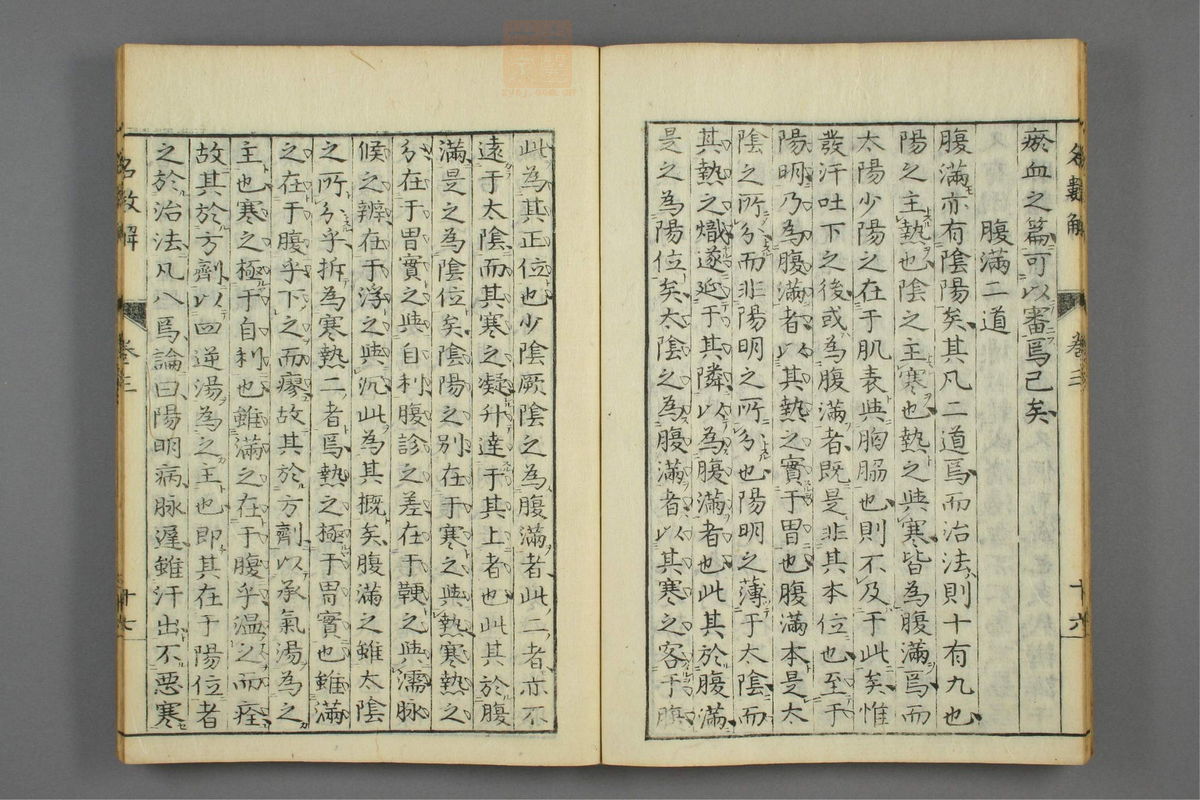 瘀血之篇可以審焉已矣
腹滿二道
腹滿亦有陰陽矣其凡二道焉而治法則十有九也
陽之主熱也陰之主寒也熱之與寒皆為腹滿焉而
太陽少陽之在于肌表與胸脇也則不及于此矣惟
發汗吐下之後或為腹滿者既是非其本位也至于
陽明乃為腹滿者以其熱之實于胃也腹滿本是太
陰之所分而非陽明之所分也陽明之薄于太陰而
其熱之熾遂延于其隣以為腹滿者也此其於腹滿
是之為陽位矣太陰之為腹滿者以其寒之客于腹
卷三
十六
此為其正位也少陰厥陰之為腹滿者此二者亦不
遠于太陰而其寒之凝升達于其上者也此其於腹
滿是之為陰位矣陰陽之別在于寒之與熱寒熱之
分在于胃實之與自利腹診之差在于鞕之與濡脉
候之辨在于浮之與沉此為其概矣腹滿之雖太陰
之所分乎拆為寒熱二者焉熱之極于胃實也雖滿
之在于腹乎下之而瘳故其於方劑以承氣湯為之
主也寒之極于自利也雖滿之在于腹乎溫之而痊
故其於方劑以四逆湯為之主也即其在于陽位者
之於治法凡八焉論曰陽明病脉遲雖汗出不惡寒
名數解
卷三
十七